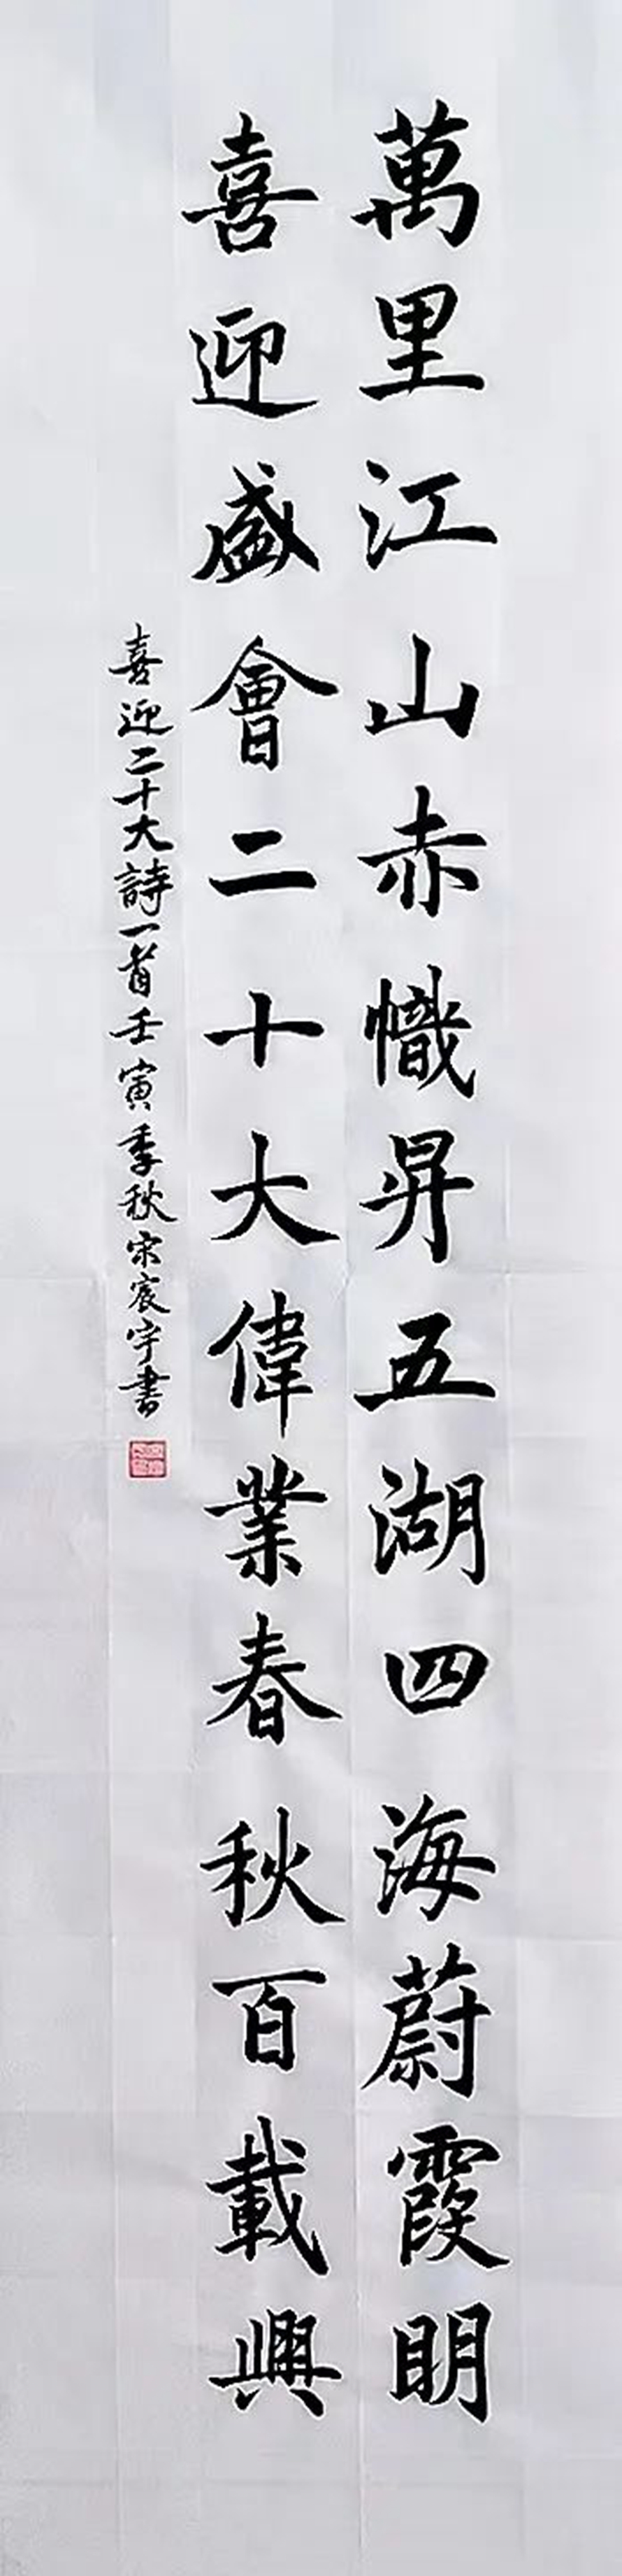 萬里江山赤幟昇五湖四海蔚霞明
喜迎盛會二十大偉業春秋百載興
喜迎二十大詩一首壬寅季秋宋宸宇書